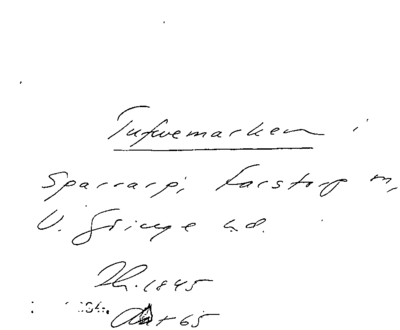 Tufvemarken i
Sparrarp, Farstorp m,
V. Göinge h.d.
Th. 1845
Aat 65